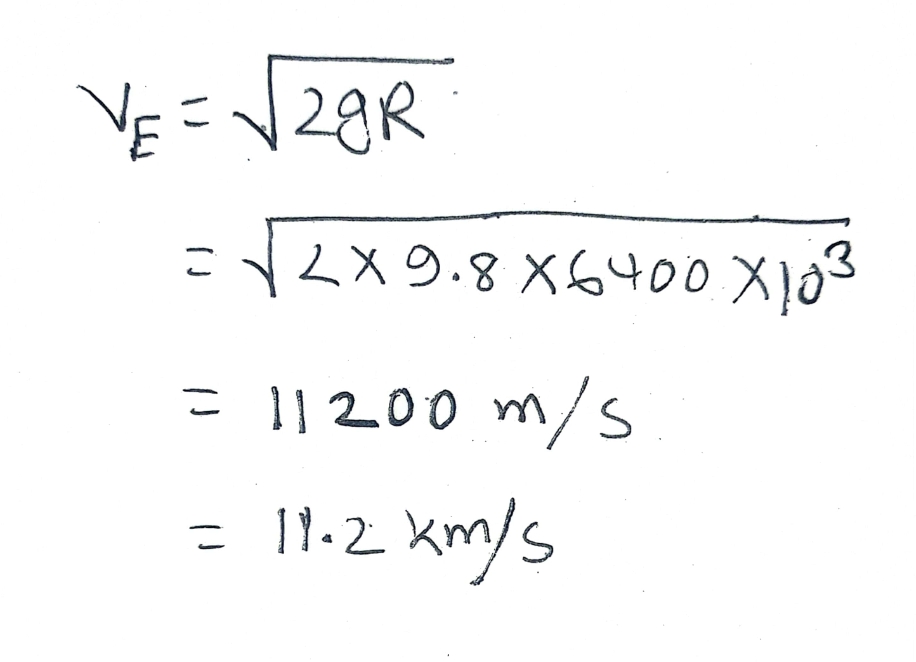 V_E = √2gR
= √2×9.8×6400×10³
= 11200 m/s
= 11.2 km/s